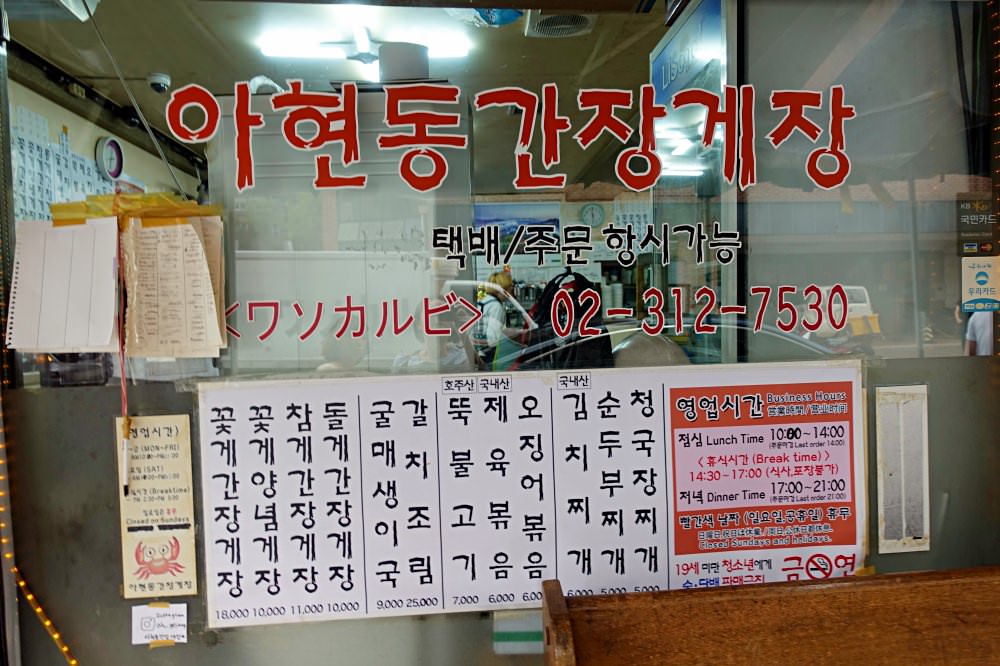 아현동 간장게장
택배/주문 항시가능
<ワソカルビ> 02-312-7530
꽃게간장게장 18,000
꽃게양념게장 10,000
참게간장게장 11,000
돌게간장게장 10,000
굴매생이국 9,000
갈치조림 25,000
호주산 뚝불고기 7,000
국내산 제육볶음 6,000
오징어볶음 6,000
국내산 김치찌개
순두부찌개 5,000
청국장찌개 5,000
영업시간 Business Hours
営業時間/营业时间
점심 Lunch Time 10:00~14:00
(주문마감 Last order 14:00)
< 휴식시간 (Break time) >
14:30~17:00 (식사,포장불가)
저녁 Dinner Time 17:00~21:00
(주문마감 Last order 21:00)
빨간색 날짜 (일요일,공휴일) 휴무
Closed Sundays and holidays.
19세 미만 청소년에게
술·담배 판매금지
금연
영업시간)
(MON~FRI)
(SAT)
(Breaktime)
일요일은 휴무
Closed on Sundays
아현동간장게장
KB
국민카드
우리카드